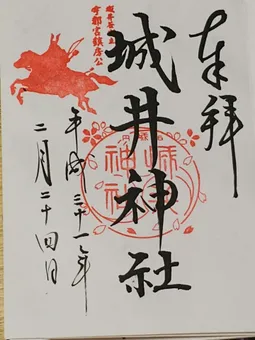 奉拝
城井神社
城井神社
宇都宮鎮房公
平成三十一年
二月二十四日